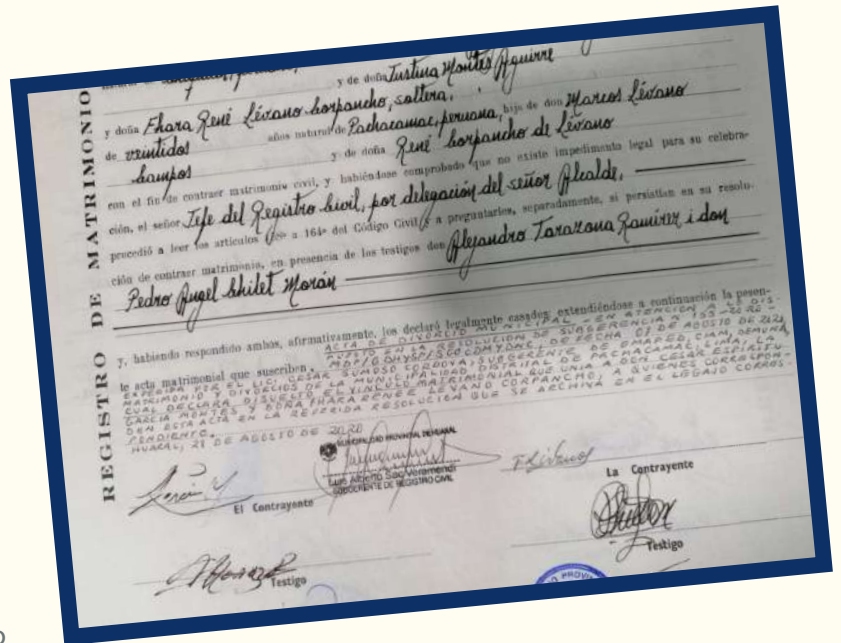 REGISTRO DE MATRIMONIO
y de doña Justina Montes Aguirre
y doña Fhara René Lévano Corpancho, soltera,
de veintidos años natural de Pachacamac, peruana, hija de don Marcos Lévano
Campos y de doña René Corpancho de Lévano
con el fin de contraer matrimonio civil, y habiéndose comprobado que no existe impedimento legal para su celebra-
ción, el señor Jefe del Registro Civil, por delegación del señor Alcalde,
procedió a leer los artículos a 164º del Código Civil y a preguntarles, separadamente, si persistían en su resolu-
ción de contraer matrimonio, en presencia de los testigos don Alejandro Tarazona Ramirez i don
Pedro Angel Chilet Morán
y, habiendo respondido ambos, afirmativamente, los declaró legalmente casados; extendiéndose a continuación la presen-
te acta matrimonial que suscriben. ACTA DE DIVORCIO MUNICIPAL - EN ATENCION A LO DIS-
PUESTO EN LA RESOLUCION DE SUBGERENCIA
DE FECHA 07 DE AGOSTO DE 2020
EXPEDIDA POR EL LIC. CESAR SUMOSO CORDOVA, SUBGERENTE DE OMAPED, CIAM, DEMUNA,
MATRIMONIO Y DIVORCIOS DE LA MUNICIPALIDAD DISTRITAL DE PACHACAMAC, LIMA, LA
CUAL DECLARA DISUELTO EL VINCULO MATRIMONIAL QUE UNIA A DON CESAR ESPIRITU
GARCIA MONTES Y DOÑA FHARA RENER LEVANO CORPANCHO, A QUIENES CORRESPON-
DEN ESTA ACTA EN LA REFERIDA RESOLUCION QUE SE ARCHIVA EN EL LEGAJO CORRES-
PONDIENTE.
HUARAL, 28 DE AGOSTO DE 2020
MUNICIPALIDAD PROVINCIAL DE HUARAL
Luis Alberto Sac Veramendi
SUBGERENTE DE REGISTRO CIVIL
El Contrayente
La Contrayente
Testigo
Testigo